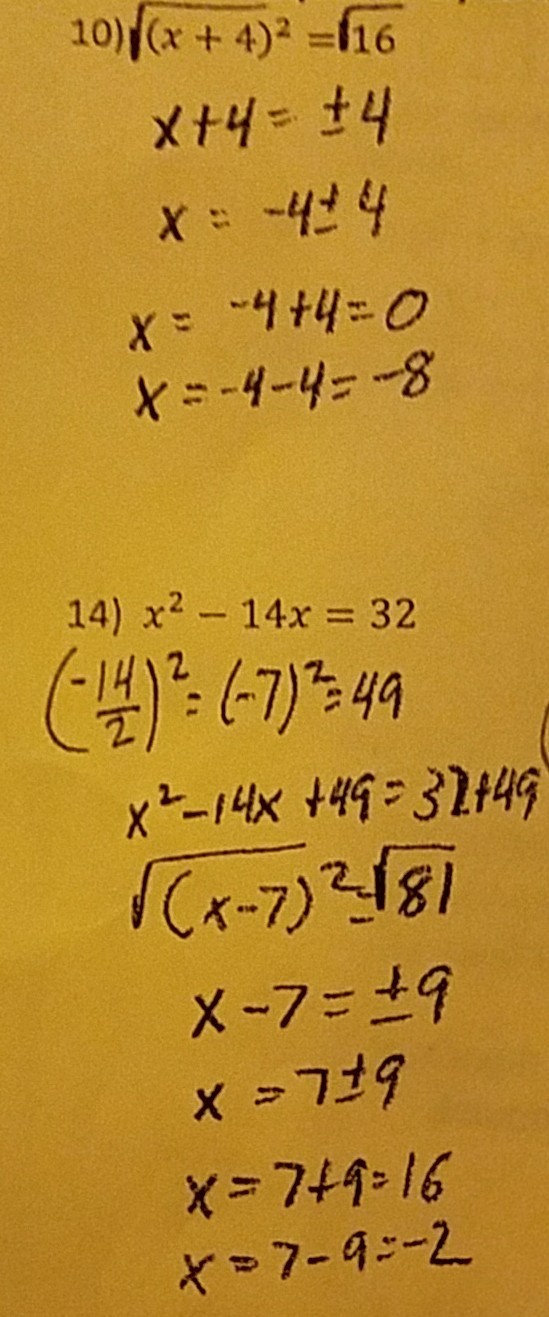 10) √(x + 4)² = √16
x+4 = ±4
x = -4 ± 4
x = -4+4=0
x = -4-4=-8
14) x² − 14x = 32
(-14/2)² = (-7)² = 49
x²-14x +49 = 32+49
√(x-7)² = √81
x-7 = ±9
x = 7±9
x = 7+9=16
x = 7-9=-2